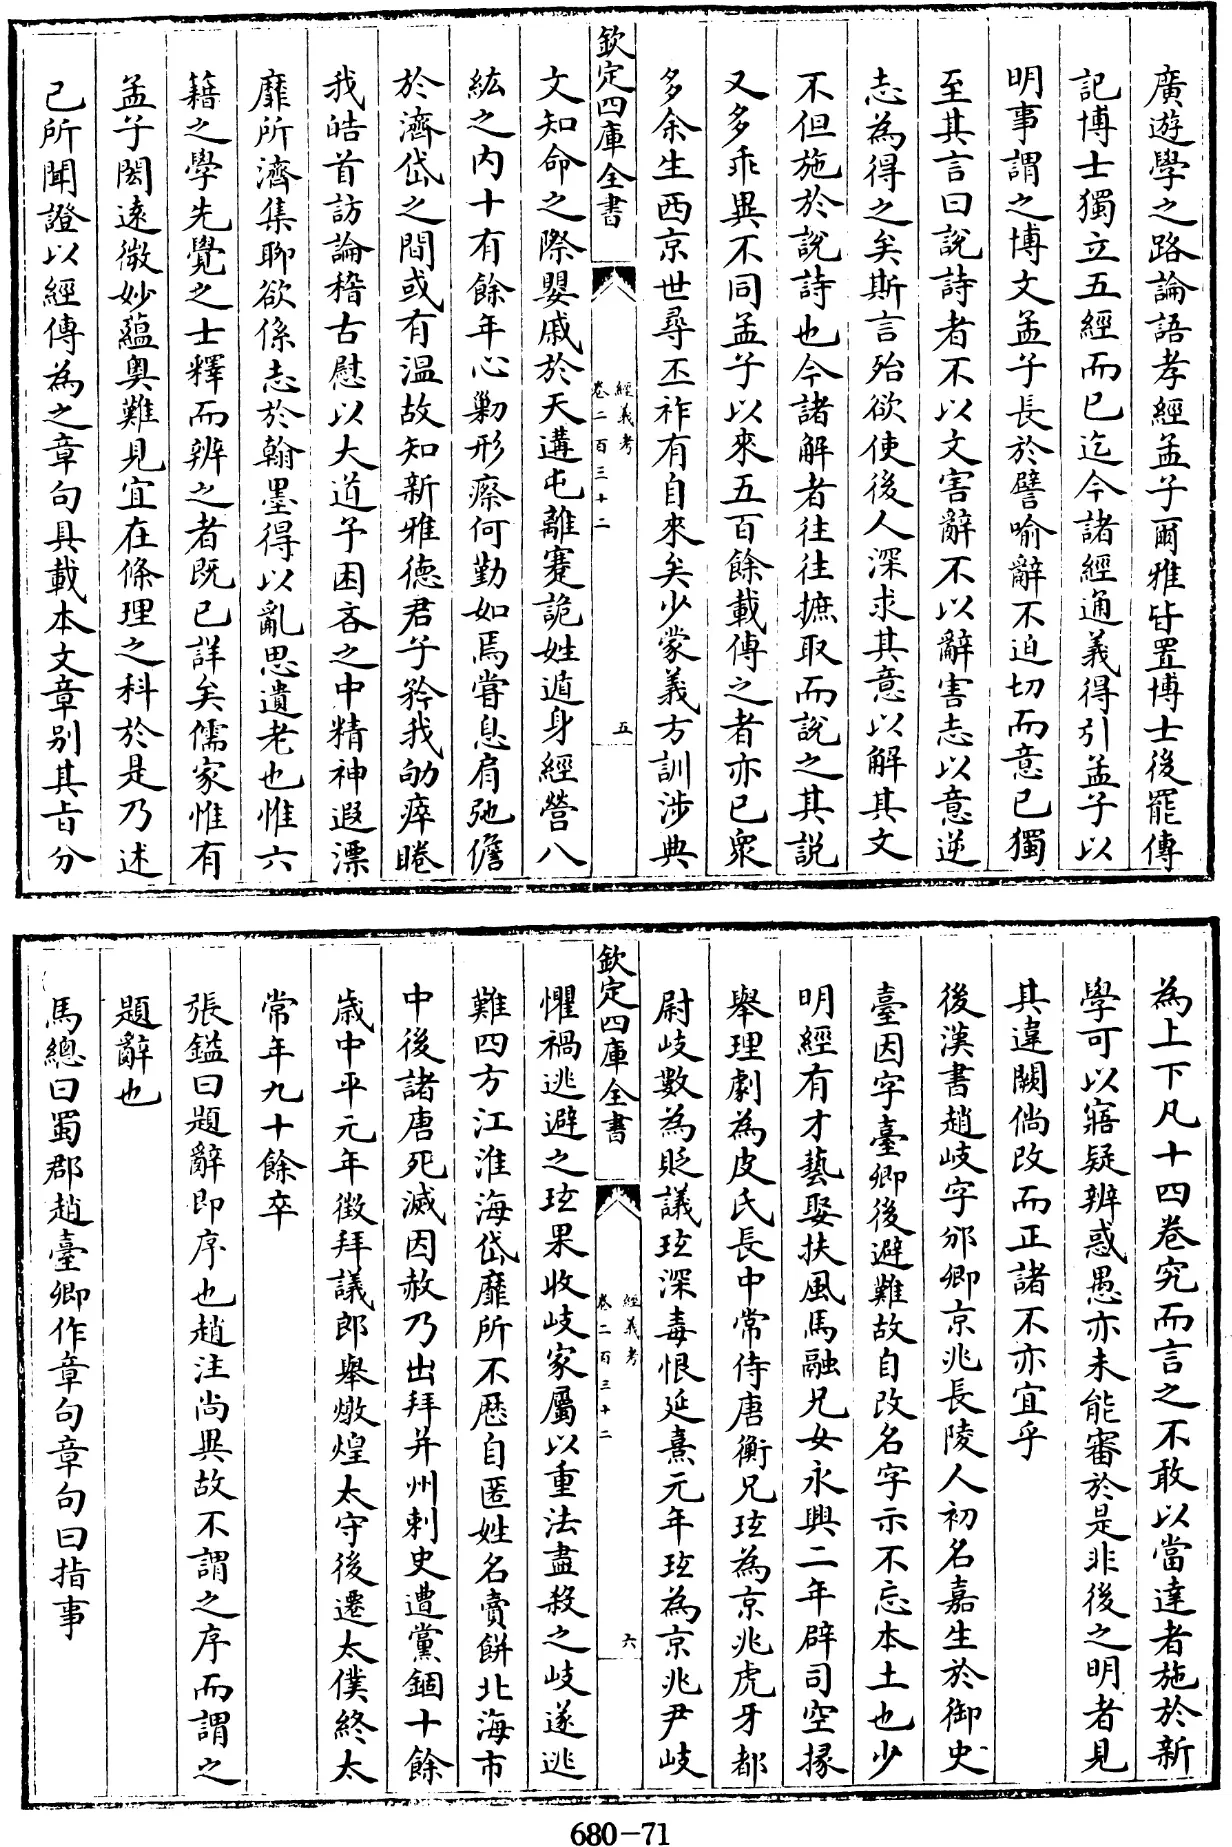 廣遊學之路論語孝經孟子爾雅皆置博士後罷傳
記博士獨立五經而已迄今諸經通義得引孟子以
明事謂之博文孟子長於譬喻辭不迫切而意已獨
至其言曰說詩者不以文害辭不以辭害志以意逆
志為得之矣斯言殆欲使後人深求其意以解其文
不但施於說詩也今諸解者往往摭取而說之其說
又多乖異不同孟子以來五百餘載傳之者亦已衆
多余生西京世尋丕祚有自來矣少蒙義方訓涉典
欽定四庫全書
經義考
卷二百三十二
五
文知命之際嬰戚於天遘屯離蹇詭姓遁身經營八
紘之内十有餘年心勦形瘵何勤如焉嘗息肩弛儋
於濟岱之間或有温故知新雅德君子矜我劬瘁睠
我皓首訪論稽古慰以大道予困吝之中精神遐漂
靡所濟集聊欲係志於翰墨得以亂思遺老也惟六
籍之學先覺之士釋而辨之者既已詳矣儒家惟有
孟子閎遠微妙蘊奥難見宜在條理之科於是乃述
己所聞證以經傳為之章句具載本文章别其㫖分
為上下凡十四卷究而言之不敢以當達者施於新
學可以寤疑辨惑愚亦未能審於是非後之明者見
其違闕倘改而正諸不亦宜乎
後漢書趙岐字邠卿京兆長陵人初名嘉生於御史
臺因字臺卿後避難故自改名字示不忘本土也少
明經有才藝娶扶風馬融兄女永興二年辟司空掾
舉理劇為皮氏長中常侍唐衡兄玹為京兆虎牙都
尉岐數為貶議玹深毒恨延熹元年玹為京兆尹岐
欽定四庫全書
經義考
卷二百三十二
六
懼禍逃避之玹果收岐家屬以重法盡殺之岐遂逃
難四方江淮海岱靡所不歴自匿姓名賣餅北海市
中後諸唐死滅因赦乃出拜并州刺史遭黨錮十餘
歳中平元年徴拜議郎舉燉煌太守後遷太僕終太
常年九十餘卒
張鎰曰題辭即序也趙注尚異故不謂之序而謂之
題辭也
馬總曰蜀郡趙臺卿作章句章句曰指事
680-71